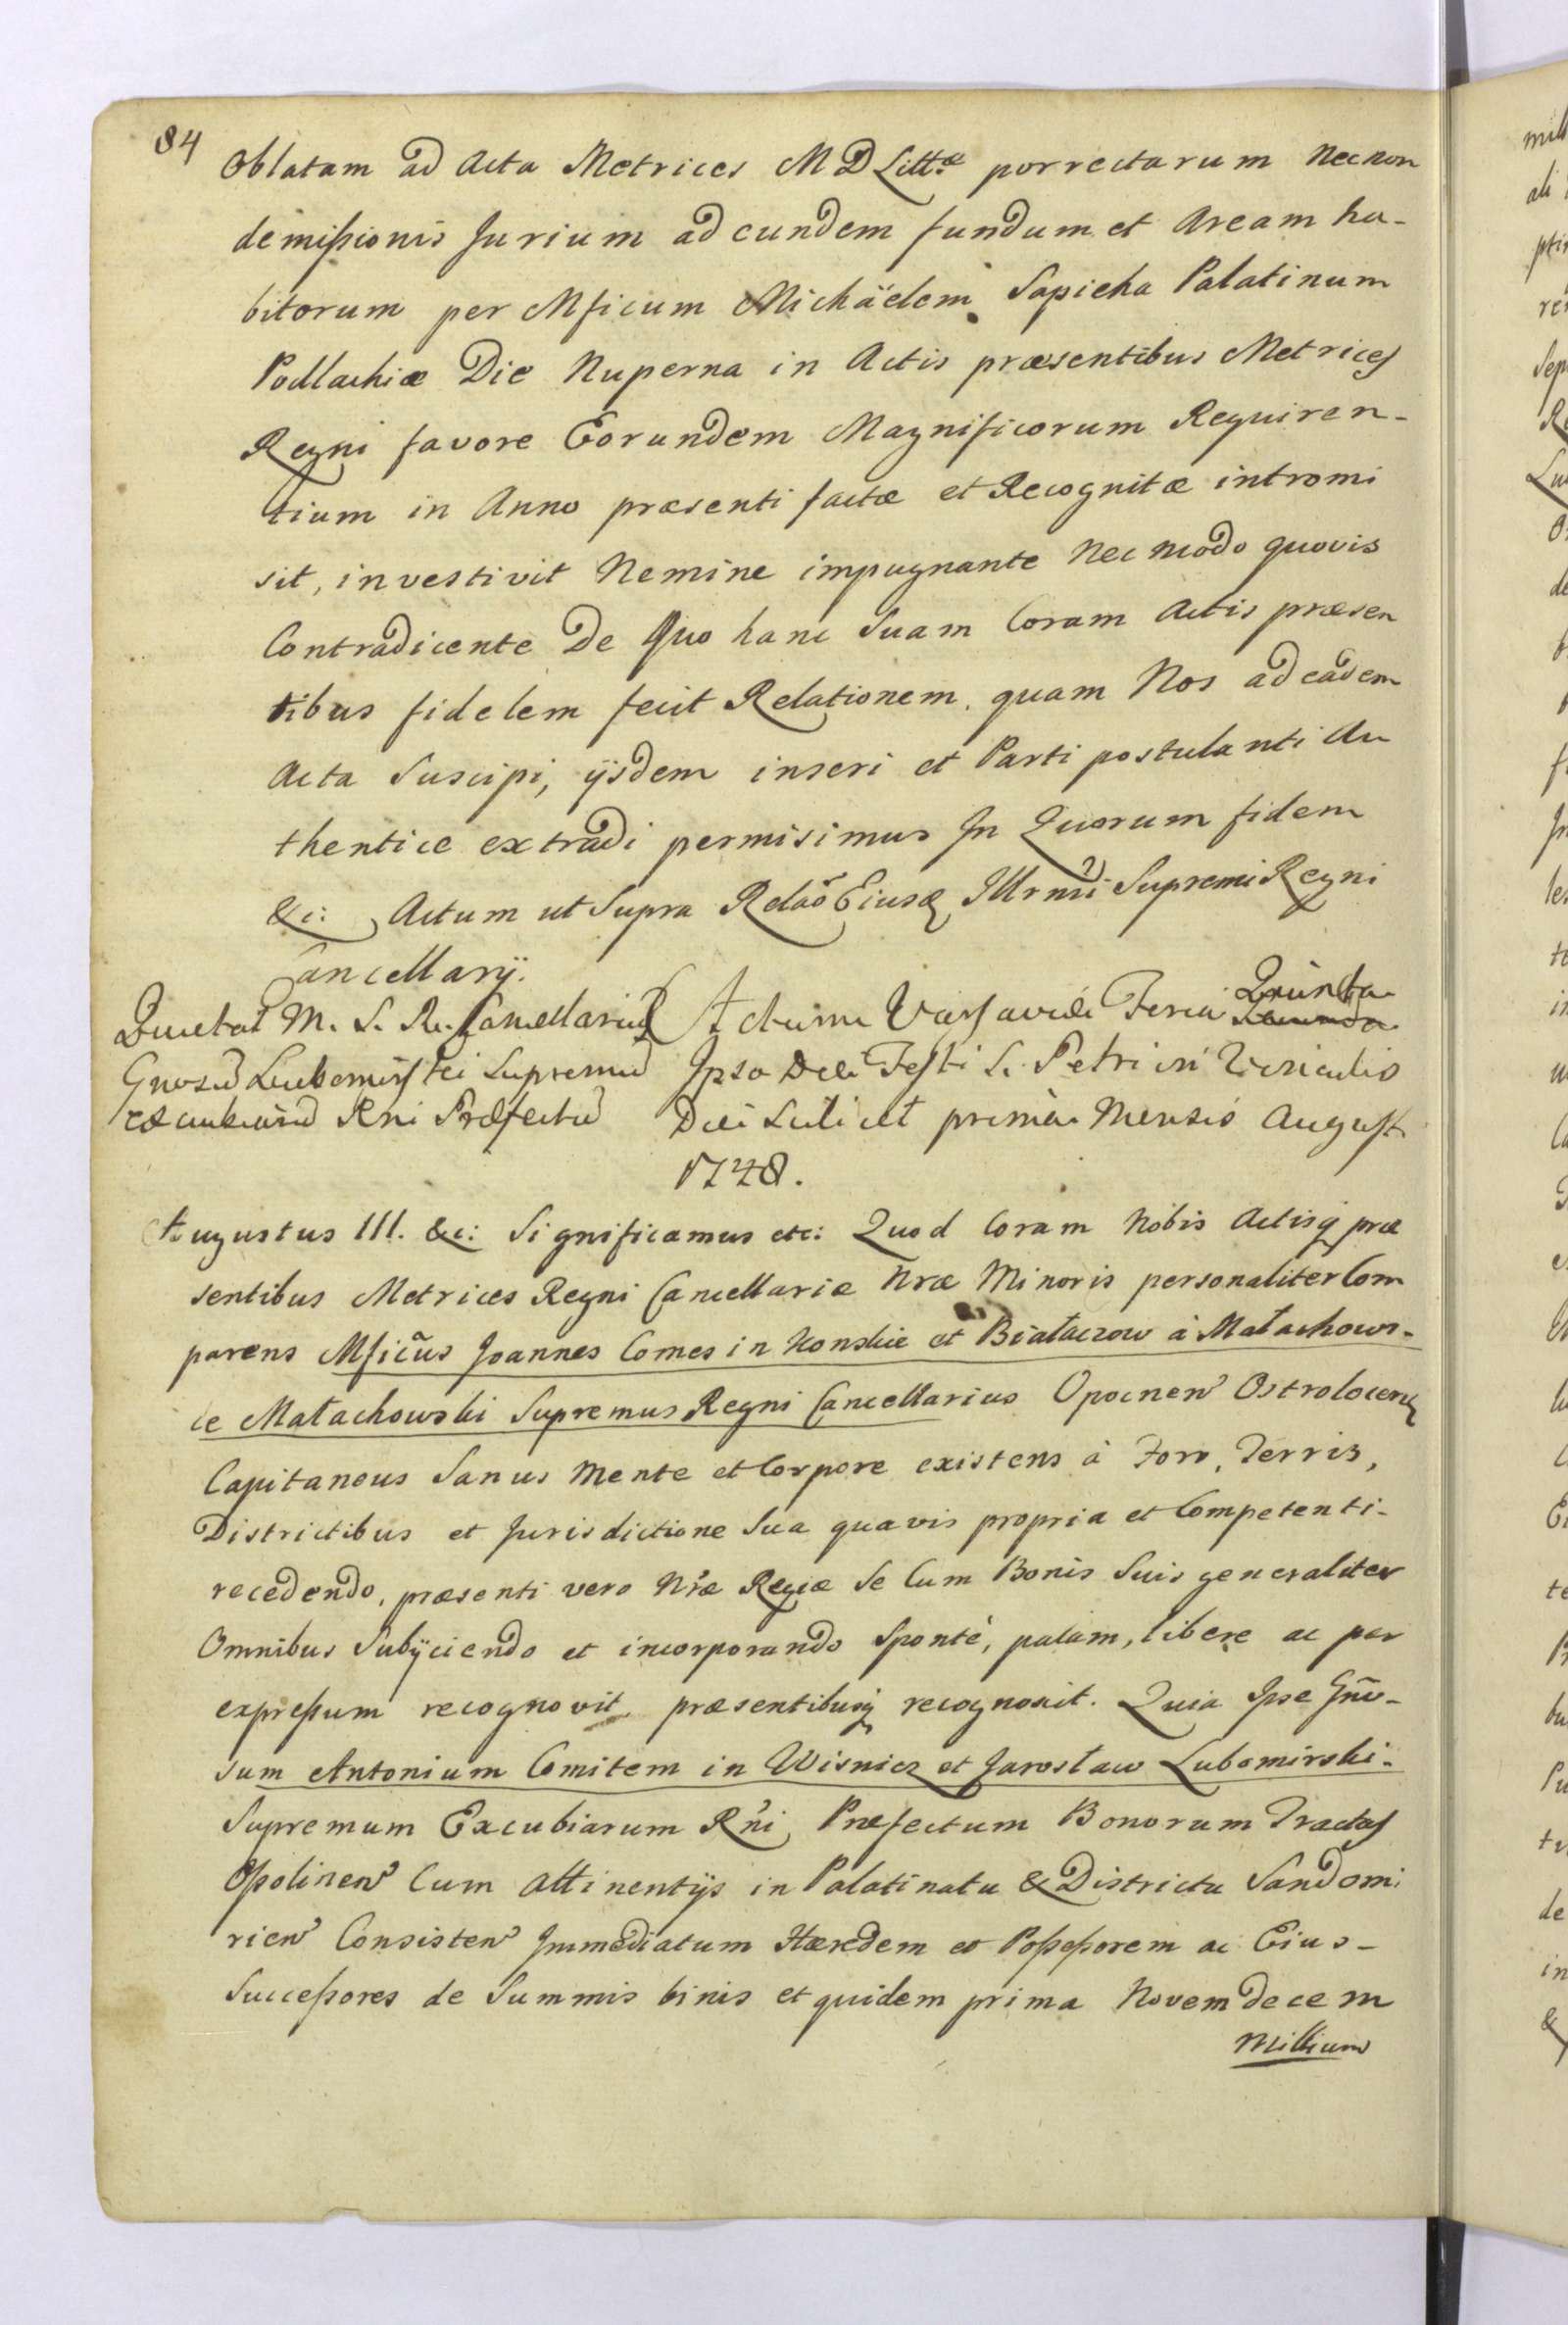 84
Oblatam ad Acta Metrices M D Littæ porrectarum Necnon
demißionis Jurium ad eundem fundum et Aream ha-
bitorum per Mficum Michäelem Sapieha Palatinum
Podlachiæ Die Nuperna in Actis præsentibus Metrices
Regni favore Eorundem Magnificorum Requiren-
tium in Anno præsenti factæ et Recognitæ intromi
sit, investivit Nemine impugnante Nec modo quovis
Contradicente De Quo hanc Suam Coram Actis præsen
tibus fidelem fecit Relationem, quam Nos ad eadem
Acta Suscipi, ijsdem inseri et Parti postulanti Au
thentice extradi permisimus In Quorum fidem
&c: Actum ut Supra Relão Eiusq Illrmi Supremi Regni
Cancellarij.
Quietat M. S. R. Cancellarius
Gnosũ Lubomirskei Supremũ
excubiarũ Rni Præfectũ
Actum Varsaviæ Feria Quinta Secunda
Ipso Die Festi S. Petri in Vinculis
Die Scilicet prima Mensis August
1748.
Augustus III. &c: Significamus etc: Quod Coram Nobis Actisq præ
sentibus Metrices Regni Cancellariæ Nræ Minoris personaliter Com
parens Mficũs Joannes Comes in Konskie et Białaczow à Małachows-
ce Małachowski Supremus Regni Cancellarius Opocnen Ostrolocenq
Capitaneus Sanus Mente et Corpore existens à Foro, Terris,
Districtibus et Jurisdictione Sua quavis propria et Competenti-
recedendo, præsenti vero Nræ Regiæ Se Cum Bonis Suis generaliter
Omnibus Subijciendo et incorporando Sponte, palam, libere ac per
expreßum recognovit, præsentibusq recognoscit. Quia Ipse Gño-
sum Antonium Comitem in Wisnicz et Jarosław Lubomirski-
Supremum Excubiarum Rni Præfectum Bonorum Tractus
Opolinen Cum Attinentijs in Palatinatu & Districtu Sandomi
rien Consisten Immediatum Hæredem et Poßeßorem ac Eius-
Succeßores de Summis binis et quidem prima Novem decem
Millium